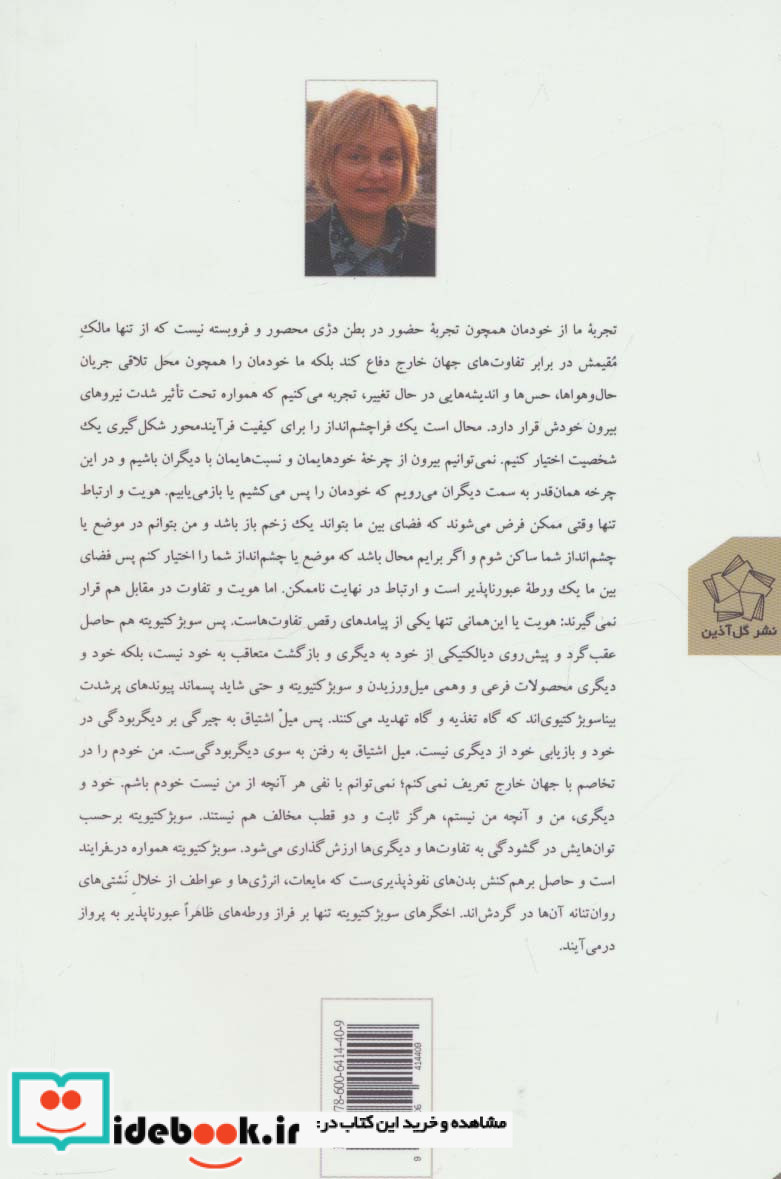 تجربهٔ ما از خودمان همچون تجربهٔ حضور در بطن دژی محصور و فروبسته نیست که از تنها مالکِ
مُقیمش در برابر تفاوت‌های جهان خارج دفاع کند بلکه ما خودمان را همچون محل تلاقی جریان
حال‌وهواها، حس‌ها و اندیشه‌هایی در حال تغییر، تجربه می‌کنیم که همواره تحت تأثیر شدت نیروهای
بیرون خودش قرار دارد. محال است یک فراچشم‌انداز را برای کیفیت فرآیندمحور شکل‌گیری یک
شخصیت اختیار کنیم. نمی‌توانیم بیرون از چرخهٔ خودهایمان و نسبت‌هایمان با دیگران باشیم و در این
چرخه همان‌قدر به سمت دیگران می‌رویم که خودمان را پس می‌کشیم یا بازمی‌یابیم. هویت و ارتباط
تنها وقتی ممکن فرض می‌شوند که فضای بین ما بتواند یک زخم باز باشد و من بتوانم در موضع یا
چشم‌انداز شما ساکن شوم و اگر برایم محال باشد که موضع یا چشم‌انداز شما را اختیار کنم پس فضای
بین ما یک ورطهٔ عبورناپذیر است و ارتباط در نهایت ناممکن. اما هویت و تفاوت در مقابل هم قرار
نمی‌گیرند: هویت یا این‌همانی تنها یکی از پیامدهای رقص تفاوت‌هاست. پس سوبژکتیویته هم حاصل
عقب‌گرد و پیش‌روی دیالکتیکی از خود به دیگری و بازگشت متعاقب به خود نیست، بلکه خود و
دیگری محصولات فرعی و وهمی میل‌ورزیدن و سوبژکتیویته و حتی شاید پسماند پیوندهای پرشدت
بیناسوبژکتیوی‌اند که گاه تغذیه و گاه تهدید می‌کنند. پس میلْ اشتیاق به چیرگی بر دیگربودگی در
خود و بازیابی خود از دیگری نیست. میل اشتیاق به رفتن به سوی دیگربودگی‌ست. من خودم را در
تخاصم با جهان خارج تعریف نمی‌کنم؛ نمی‌توانم با نفی هر آنچه از من نیست خودم باشم. خود و
دیگری، من و آنچه من نیستم، هرگز ثابت و دو قطب مخالف هم نیستند. سوبژکتیویته برحسب
توان‌هایش در گشودگی به تفاوت‌ها و دیگری‌ها ارزش‌گذاری می‌شود. سوبژکتیویته همواره در‌ـفرایند
است و حاصل برهم‌کنش بدن‌های نفوذپذیری‌ست که مایعات، انرژی‌ها و عواطف از خلالِ نَشتی‌های
روان‌تنانه آن‌ها در گردش‌اند. اخگرهای سوبژکتیویته تنها بر فراز ورطه‌های ظاهراً عبورناپذیر به پرواز
درمی‌آیند.
نشر گل‌آذین
78-600-6414-40-9
414409
مشاهده و خرید این کتاب در:
idebook.ir